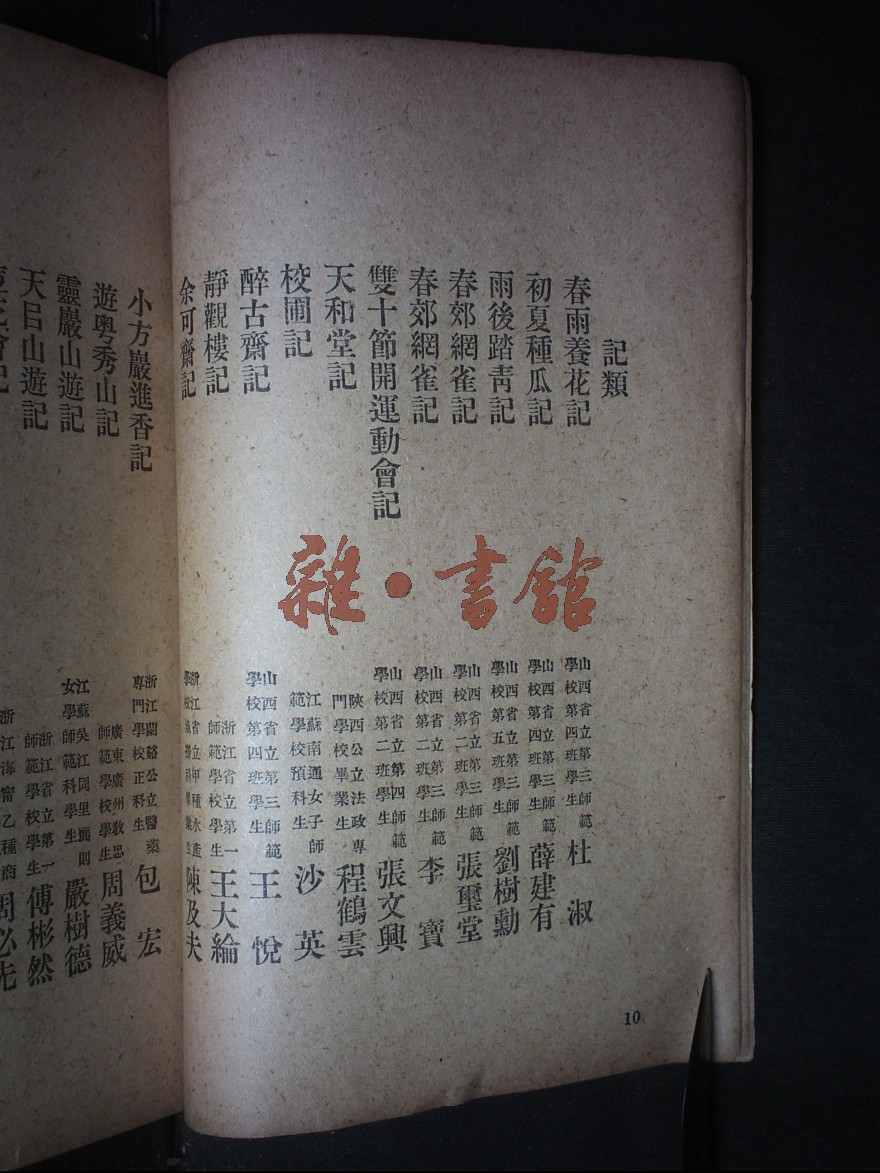 記類
春雨養花記 山西省立第三師範學校第四班學生 杜淑
初夏種瓜記 山西省立第三師範學校第四班學生 薛建有
雨後踏青記 山西省立第三師範學校第五班學生 劉樹勳
春郊網雀記 山西省立第三師範學校第二班學生 張璽堂
春郊網雀記 山西省立第三師範學校第二班學生 李寶
雙十節開運動會記 山西省立第四師範學校第二班學生 張文興
天和堂記 陝西公立法政專門學校畢業生 程鶴雲
校圃記 江蘇南通女子師範學校預科生 沙英
醉古齋記 山西省立第三師範學校第四班學生 王悅
靜觀樓記 浙江省立第一師範學校學生 王大綸
余可齋記 浙江省立甲種水產學校 陳及夫
10
小方巖進香記 浙江蘭谿公立醫藥專門學校正科生 包宏
遊粵秀山記 廣東廣州教忠師範學校學生 周義威
靈巖山遊記 江蘇吳江同里麗則女學師範科學生 嚴樹德
天目山遊記 浙江省立第一師範學校學生 傅彬然
會記 浙江海甯乙種商 周必先
雜·書館